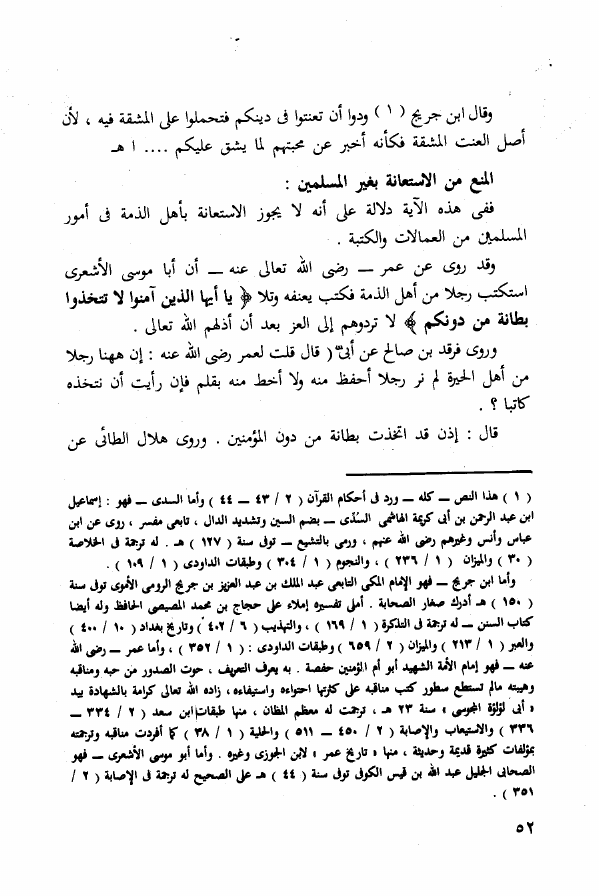 وقال ابن جريج ( ١ ) ودوا أن تعنتوا فى دينكم فتحملوا على المشقة فيه ، لأن
أصل العنت المشقة فكأنه أخبر عن محبتهم لما يشق عليكم .... ا هـ
المنع من الاستعانة بغير المسلمين :
ففى هذه الآية دلالة على أنه لا يجوز الاستعانة بأهل الذمة فى أمور
المسلمين من العمالات والكتبة .
وقد روى عن عمر ــ رضى الله تعالى عنه ــ أن أبا موسى الأشعرى
استكتب رجلا من أهل الذمة فكتب يعنفه وتلا ﴿ يا أيها الذين آمنوا لا تتخذوا
بطانة من دونكم ﴾ لا تردوهم إلى العز بعد أن أذلهم الله تعالى .
وروى فرقد بن صالح عن أبىّ ( قال قلت لعمر رضى الله عنه : إن ههنا رجلا
من أهل الحيرة لم نر رجلا أحفظ منه ولا أخط منه بقلم فإن رأيت أن نتخذه
كاتبا ؟ .
قال : إذن قد اتخذت بطانة من دون المؤمنين . وروى هلال الطائى عن
( ١ ) هذا النص ــ كله ــ ورد فى أحكام القرآن ( ٢ / ٤٣ ــ ٤٤ ) وأما السدى ــ فهو : إسماعيل
ابن عبد الرحمن بن أبى كريمة الهاشمى السُدّى ــ بضم السين وتشديد الدال ، تابعى مفسر ، روى عن ابن
عباس وأنس وغيرهم رضى الله عنهم ، ورمى بالتشيع ــ توفى سنة ( ١٢٧ ) هـ . له ترجمة فى الخلاصة
( ٣٠ ) والميزان ( ١ / ٢٣٦ ) ، والنجوم ( ١ / ٣٠٤ ) وطبقات الداودى ( ١ / ١٠٩ ) .
وأما ابن جريج ــ فهو الإمام المكى التابعى عبد الملك بن عبد العزيز بن جريج الرومى الأموى توفى سنة
( ١٥٠ ) هـ أدرك صغار الصحابة . أملى تفسيره إملاء على حجاج بن محمد المصيصى الحافظ وله أيضا
كتاب السنن ــ له ترجمة فى التذكرة ( ١ / ١٦٩ ) ، والتهذيب ( ٦ / ٤٠٢ ) وتاريخ بغداد ( ١٠ / ٤٠٠ )
والعبر ( ١ / ٢١٣ ) والميزان ( ٢ / ٦٥٩ ) وطبقات الداودى : ( ١ / ٣٥٢ ) ، وأما عمر ــ رضى الله
عنه ــ فهو إمام الأمة الشهيد أبو أم المؤمنين حفصة . به يعرف التعريف ، حوت الصدور من حبه ومناقبه
وهيبته مالم تستطع سطور كتب مناقبه على كثرتها احتواءه واستيفاءه ، زاده الله تعالى كرامة بالشهادة بيد
« أبى لؤلؤة المجوسى » سنة ٢٣ هـ ، ترجمت له معظم المظان ، منها طبقات ابن سعد ( ٢ / ٣٣٤ ــ
٣٣٦ ) والاستيعاب والإصابة ( ٢ / ٤٥٠ ــ ٥١١ ) والحلية ( ١ / ٣٨ ) كما أفردت مناقبه وترجمته
بمؤلفات كثيرة قديمة وحديثة ، منها « تاريخ عمر » لابن الجوزى وغيره . وأما أبو موسى الأشعرى ــ فهو
الصحابى الجليل عبد الله بن قيس الكوفى توفى سنة ( ٤٤ ) هـ على الصحيح له ترجمة فى الإصابة ( ٢ /
٣٥١ ) .
٥٢